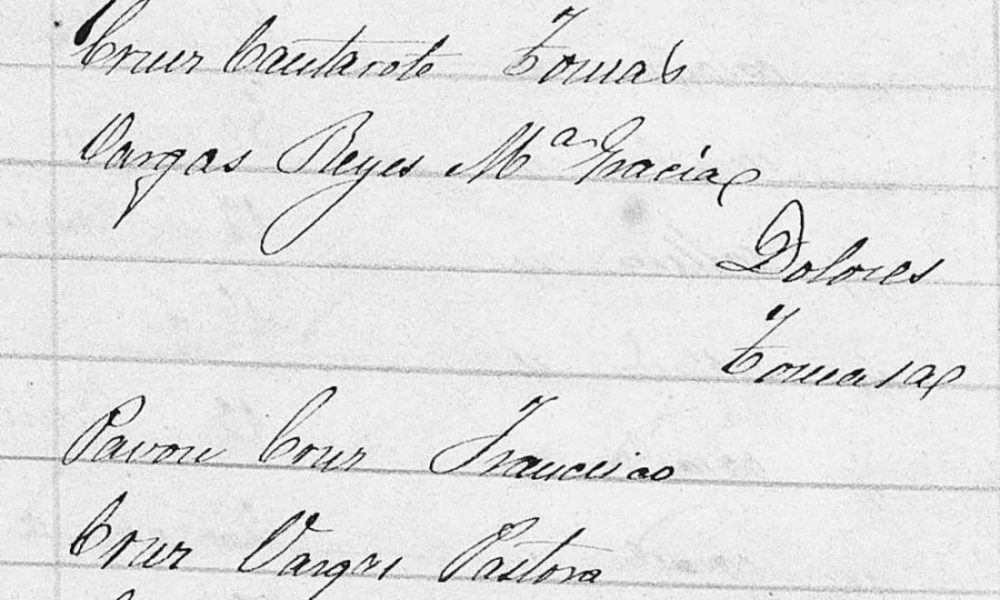 Cruz Cantarote Tomás
Vargas Reyes Mª Gracia
Dolores
Tomasa
Pavon Cruz Francisco
Cruz Vargas Pastora